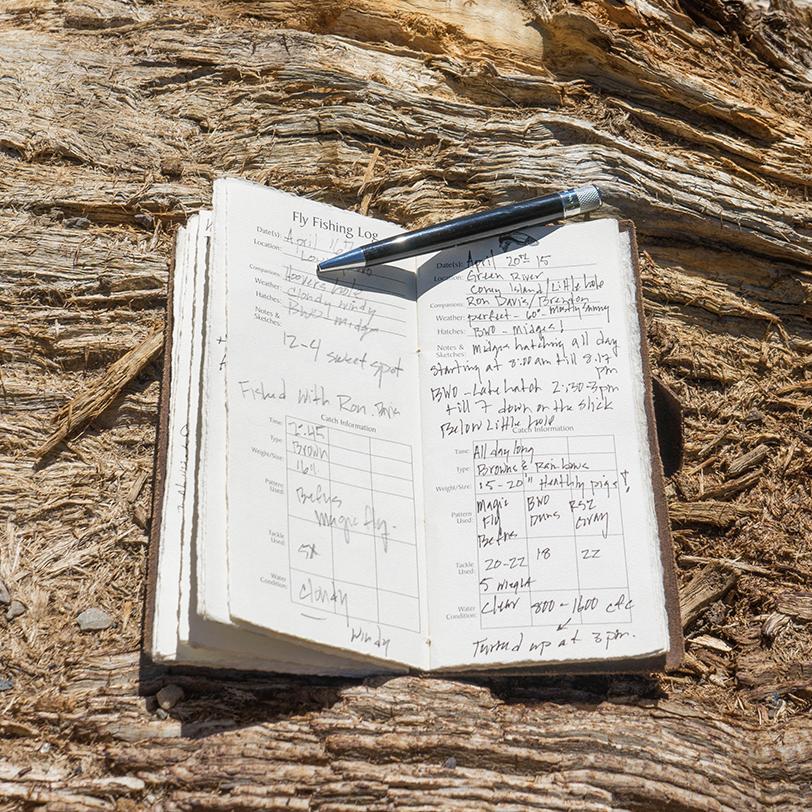 Fly Fishing Log
Date(s): April 11th
Location:
Companions: Hoovers hole
Weather: cloudy windy
Hatches: BWO midge
Notes &
Sketches:
12-4 sweet spot
Fished with Ron. Davis
Catch Information
Time: 2:45
Type: Brown
Weight/Size: 16"
Pattern
Used: Befus
magic fly.
Tackle
Used: 5x
Water
Condition: cloudy
windy
Date(s): April 20th 15
Location: Green River
Coney Island/Little hole
Companions: Ron Davis/Brendon
Weather: perfect - 60° mostly sunny
Hatches: BWO - Midges!
Notes &
Sketches: midges hatching all day
starting at 8:00 am till 8:17
pm
BWO - Late hatch 2:30-3pm
till 7 down on the slick
Below Little hole
Catch Information
Time: All day long
Type: Browns & Rainbows
Weight/Size: 15-20" Healthy pigs!
Pattern
Used: Magic Fly Befus BWO Duns RS2 Gray
Tackle
Used: 20-22 18 22
5 weight
Water
Condition: Clear 800-1600 cfs
Turned up at 3pm.